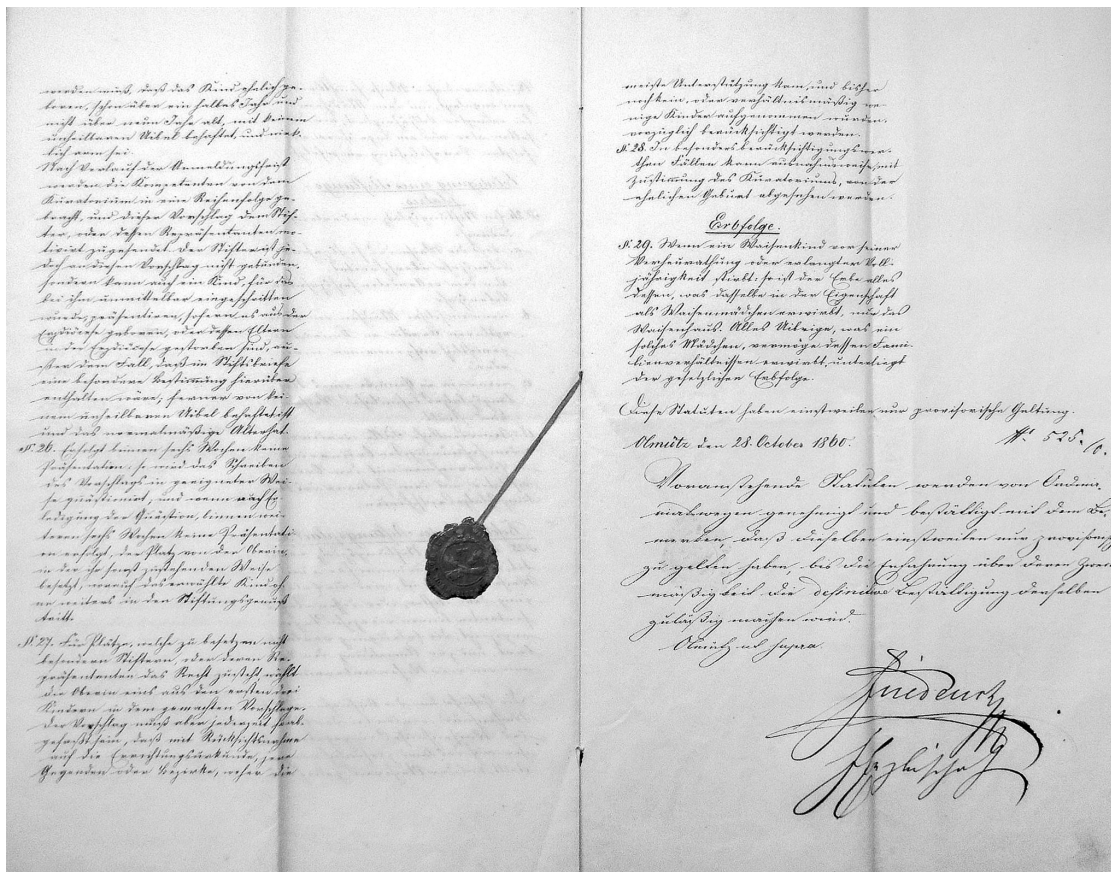 werden muß, daß das Kind ehelich ge-
boren, schon über ein halbes Jahr und
nicht über neun Jahr alt, mit keinem
unheilbaren Uibel behaftet, und wirk-
lich arm sei.
Nach Verlauf der Anmeldungsfrist
werden die Kompetenten von dem
Kuratorium in eine Reihenfolge ge-
bracht, und dieser Vorschlag dem Stif-
ter, oder dessen Repräsentanten mo-
tivirt zugesendet. Der Stifter ist je-
doch an diesen Vorschlag nicht gebunden,
sondern kann auch ein Kind, für das
bei ihm unmittelbar eingeschritten
wurde, präsentiren, sofern es aus der
Erzdiöcese geboren, oder dessen Eltern
in der Erzdiöcese gestorben sind, au-
ßer dem Fall, daß im Stiftsbriefe
eine besondere Bestimmung hierüber
enthalten wäre; ferner von kei-
nem unheilbaren Uibel behaftet ist
und das normalmäßige Alter hat.
§. 26. Erfolgt binnen sechs Wochen keine
Präsentation, so wird das Schreiben
des Vorschlags in geeigneter Wei-
se und wenn nach Er-
ledigung der binnen wei-
teren sechs Wochen keine Präsentati-
on erfolgt, der Platz von der Oberin
in der ihr sonst zustehenden Weise
besetzt, worauf das erwählte Kind oh-
ne weiters in den Stiftungsgenuß
tritt.
§. 27. Für Plätze, welche zu besetzen nicht
besondern Stiftern, oder deren Re-
präsentanten das Recht zusteht, wählt
die Oberin eins aus den ersten drei
Kindern in dem gemachten Vorschlage.
Der Vorschlag muß aber jederzeit
gefaßt sein, daß mit Rücksichtsnahme
auf die Errichtungsurkunde, jene
Gegenden oder Bezirke, woher die
meiste Unterstützung kam, und bisher
noch kein, oder verhältnismäßig we-
nige Kinder aufgenommen wurden,
vorzüglich berücksichtigt werden.
§. 28. In besonders berücksichtigungswer-
then Fällen kann ausnahmsweise, mit
Zustimmung des Kuratoriums, von der
ehelichen Geburt abgesehen werden.
Erbfolge.
§. 29. Wenn ein Waisenkind vor seiner
Verheurathung oder erlangter Voll-
jährigkeit stirbt: so ist der Erbe alles
dessen, was dasselbe in der Eigenschaft
als Waisenmädchen erwirbt, nur das
Waisenhaus. Alles Uibrige, was ein
solches Mädchen, vermöge dessen Fami-
lienverhältnissen erwirbt, unterliegt
der gesetzlichen Erbfolge.
Diese Statuten haben einstweilen nur provisorische Geltung.
Olmütz den 28. October 1860.
Nr. 525.
Voranstehende Statuten werden von Ordina-
riatswegen genehmigt und bestättigt mit dem Be-
merken, daß dieselben einstweilen nur provisorisch
zu gelten haben, bis die Erfahrung über deren Zweck-
mäßigkeit die definitive Bestättigung derselben
zuläßig machen wird.
Olmütz ut supra
Friedrich
Erzbischof